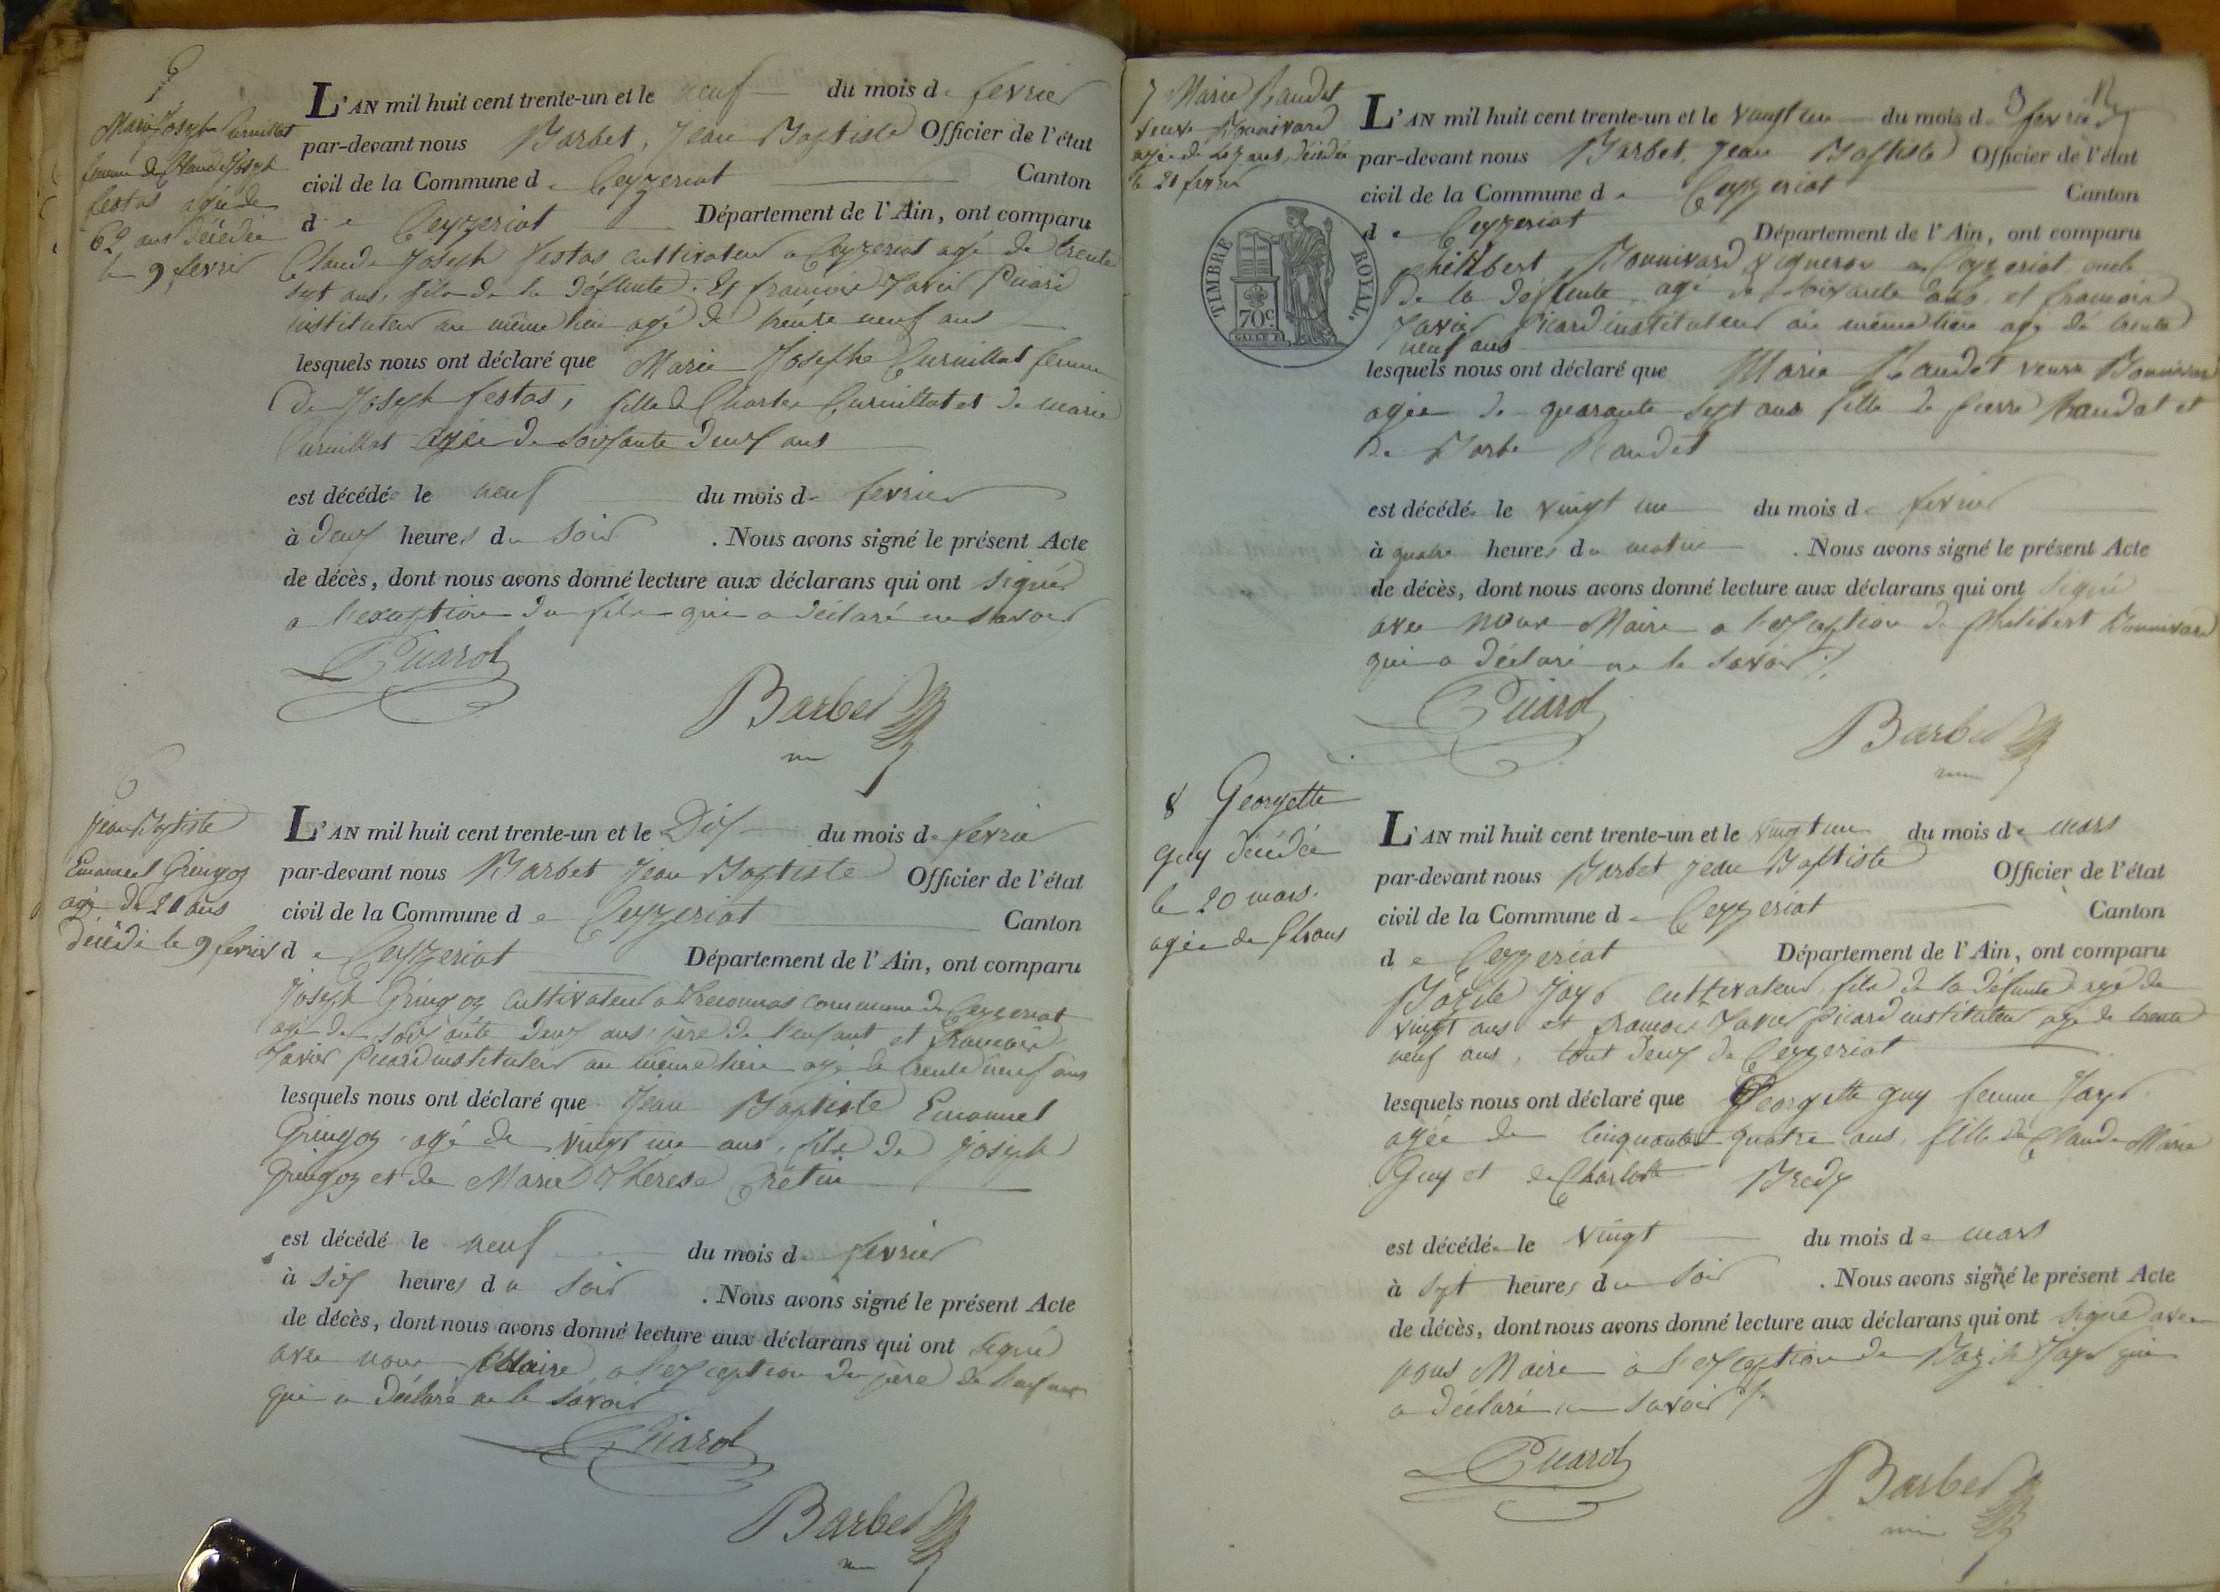 Marie Joseph Curnillat
femme de Claude Joseph
festas agée de
62 ans décédée
le 9 fevrier
L'AN mil huit cent trente-un et le neuf du mois de fevrier
par-devant nous Barbet, Jean Baptiste Officier de l'état
civil de la Commune de Ceyzeriat Canton
de Ceyzeriat Département de l'Ain, ont comparu
Claude Joseph festas cultivateur a Ceyzeriat agé de trente
sept ans, fils de la défunte. Et francois Xavier Picard
instituteur au même lieu agé de trente neuf ans
lesquels nous ont déclaré que Marie Josephe Curnillat femme
de Joseph festas, fille de Charles Curnillat et de marie
Curnillat agée de soixante deux ans
est décédée le neuf du mois de fevrier
à deux heures du soir . Nous avons signé le présent Acte
de décès, dont nous avons donné lecture aux déclarans qui ont signé
a l'exception du fils qui a déclaré ne savoir
Picard
Barbet
6
Jean Baptiste
Emanuel Gringoz
agé de 21 ans
décédé le 9 fevrier
L'AN mil huit cent trente-un et le Dix du mois de fevrier
par-devant nous Barbet Jean Baptiste Officier de l'état
civil de la Commune de Ceyzeriat Canton
de Ceyzeriat Département de l'Ain, ont comparu
Joseph Gringoz cultivateur a commune de Ceyzeriat
agé de soixante deux ans père de l'enfant et francois
Xavier Picard instituteur au même lieu agé de trente neuf ans
lesquels nous ont déclaré que Jean Baptiste Emanuel
Gringoz agé de vingt un ans, fils de Joseph
Gringoz et de Marie Thérese Crétin
est décédé le neuf du mois de fevrier
à six heures du soir . Nous avons signé le présent Acte
de décès, dont nous avons donné lecture aux déclarans qui ont signé
avec nous Maire, a l'exception du père de l'enfant
qui a déclaré ne le savoir
Picard
Barbet
3
7 Marie Raudet
veuve Bonnivard
agée de 47 ans, décédée
le 21 fevrier
TIMBRE ROYAL.
70c.
L'AN mil huit cent trente-un et le vingt un du mois de fevrier
par-devant nous Barbet, Jean Baptiste Officier de l'état
civil de la Commune de Ceyzeriat Canton
de Ceyzeriat Département de l'Ain, ont comparu
Philibert Bonnivard vigneron a Ceyzeriat oncle
de la défunte agé de soixante ans et francois
Xavier Picard instituteur au même lieu agé de trente
neuf ans
lesquels nous ont déclaré que Marie Raudet veuve Bonnivard
agée de quarante sept ans fille de Pierre Raudet et
de Barbe Raudet
est décédée le vingt un du mois de fevrier
à quatre heures du matin . Nous avons signé le présent Acte
de décès, dont nous avons donné lecture aux déclarans qui ont signé
avec nous Maire a l'exception de Philibert Bonnivard
qui a déclaré ne le savoir ./.
Picard
Barbet
8 Georgette
guy décédée
le 20 mars.
agée de 54 ans
L'AN mil huit cent trente-un et le vingt un du mois de mars
par-devant nous Barbet Jean Baptiste Officier de l'état
civil de la Commune de Ceyzeriat Canton
de Ceyzeriat Département de l'Ain, ont comparu
Bazile Jayr cultivateur fils de la défunte agé de
vingt ans et francois Xavier Picard instituteur agé de trente
neuf ans, tout deux de Ceyzeriat
lesquels nous ont déclaré que Georgette guy femme Jayr
agée de cinquante quatre ans, fille de Claude Marie
Guy et de Charlotte Bredy
est décédée le vingt du mois de mars
à sept heures du soir . Nous avons signé le présent Acte
de décès, dont nous avons donné lecture aux déclarans qui ont signé avec
nous Maire à l'exception de Bazile Jayr qui
a déclaré ne savoir ./.
Picard
Barbet